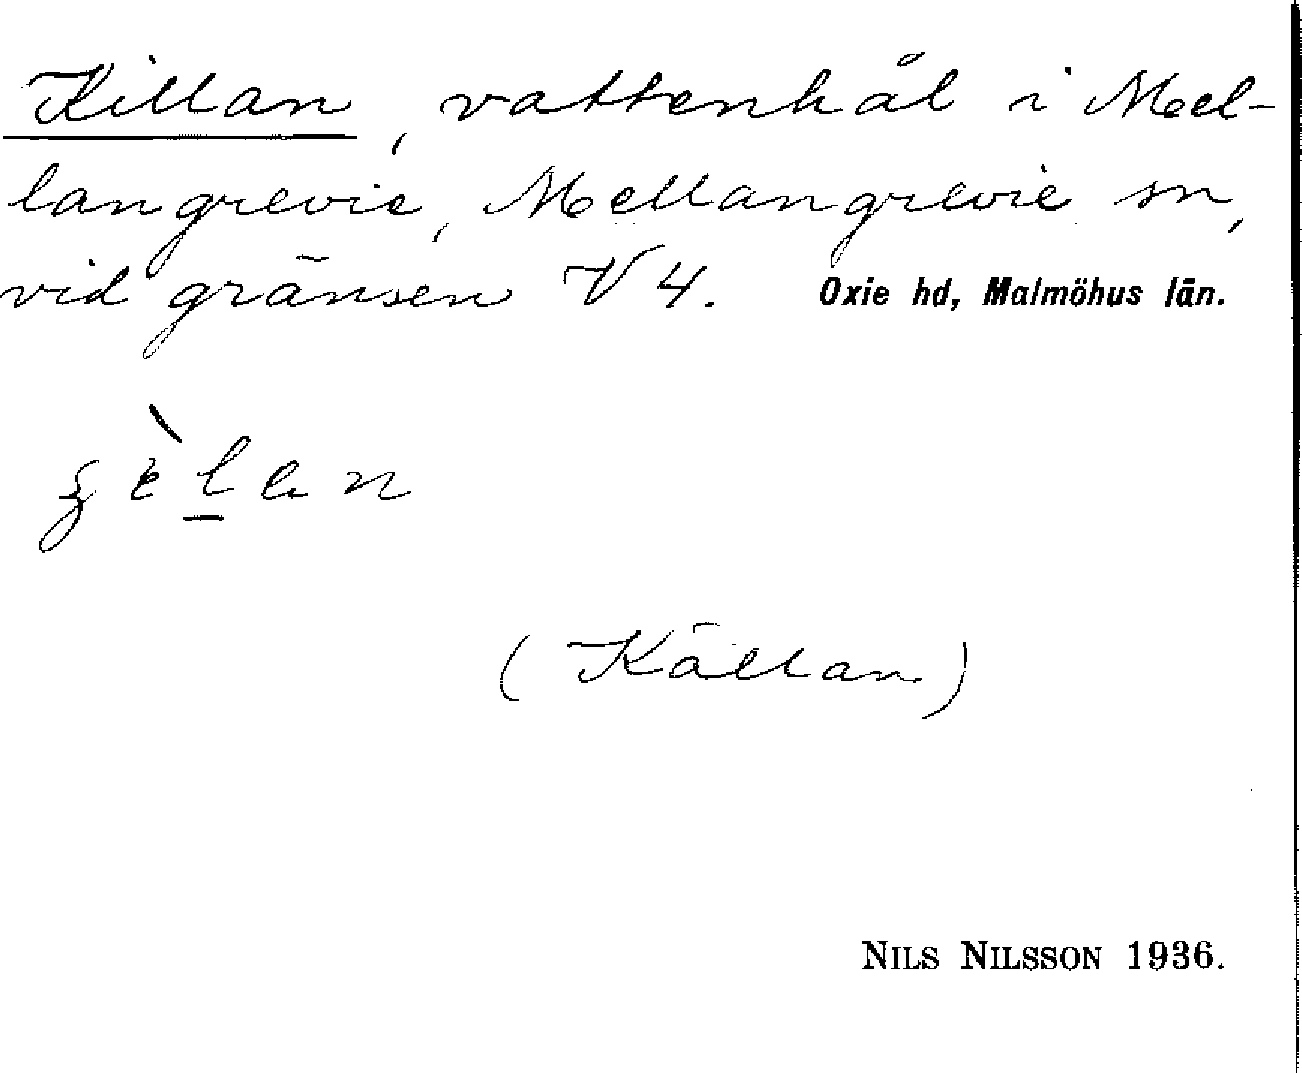 Killan, vattenhål i Mel-
langrevie, Mellangrevie sn,
vid gränsen V 4. Oxie hd, Malmöhus län.
(Källan)
NILS NILSSON 1936.